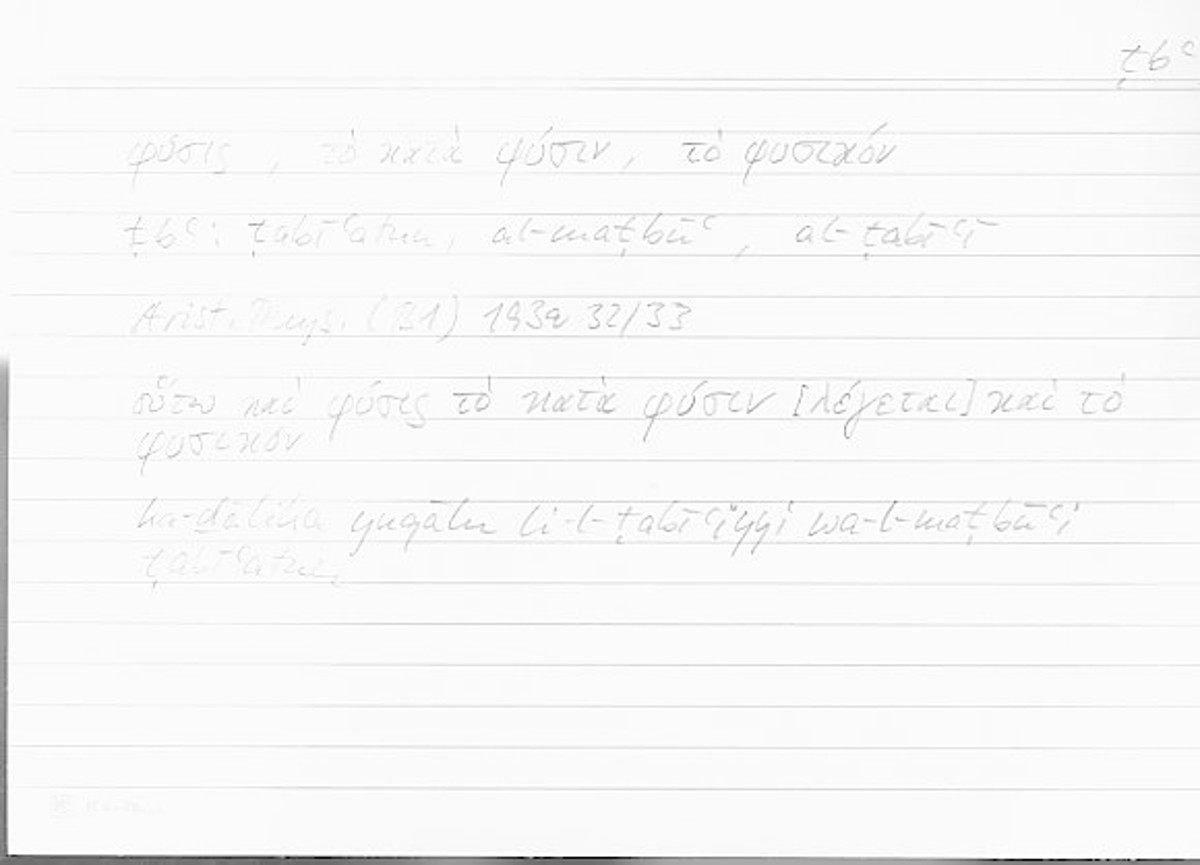 ṭbʿ
φύσις, τὸ κατὰ φύσιν, τὸ φυσικόν
ṭbʿ: ṭabīʿatun, al-maṭbūʿ, al-ṭabīʿī
Arist. Phys. (B1) 193a 32/33
οὕτω καὶ φύσις τὸ κατὰ φύσιν [λέγεται] καὶ τὸ
φυσικόν
ka-ḏālika yuqālu li-l-ṭabīʿīyyi wa-l-maṭbūʿi
ṭabīʿatun